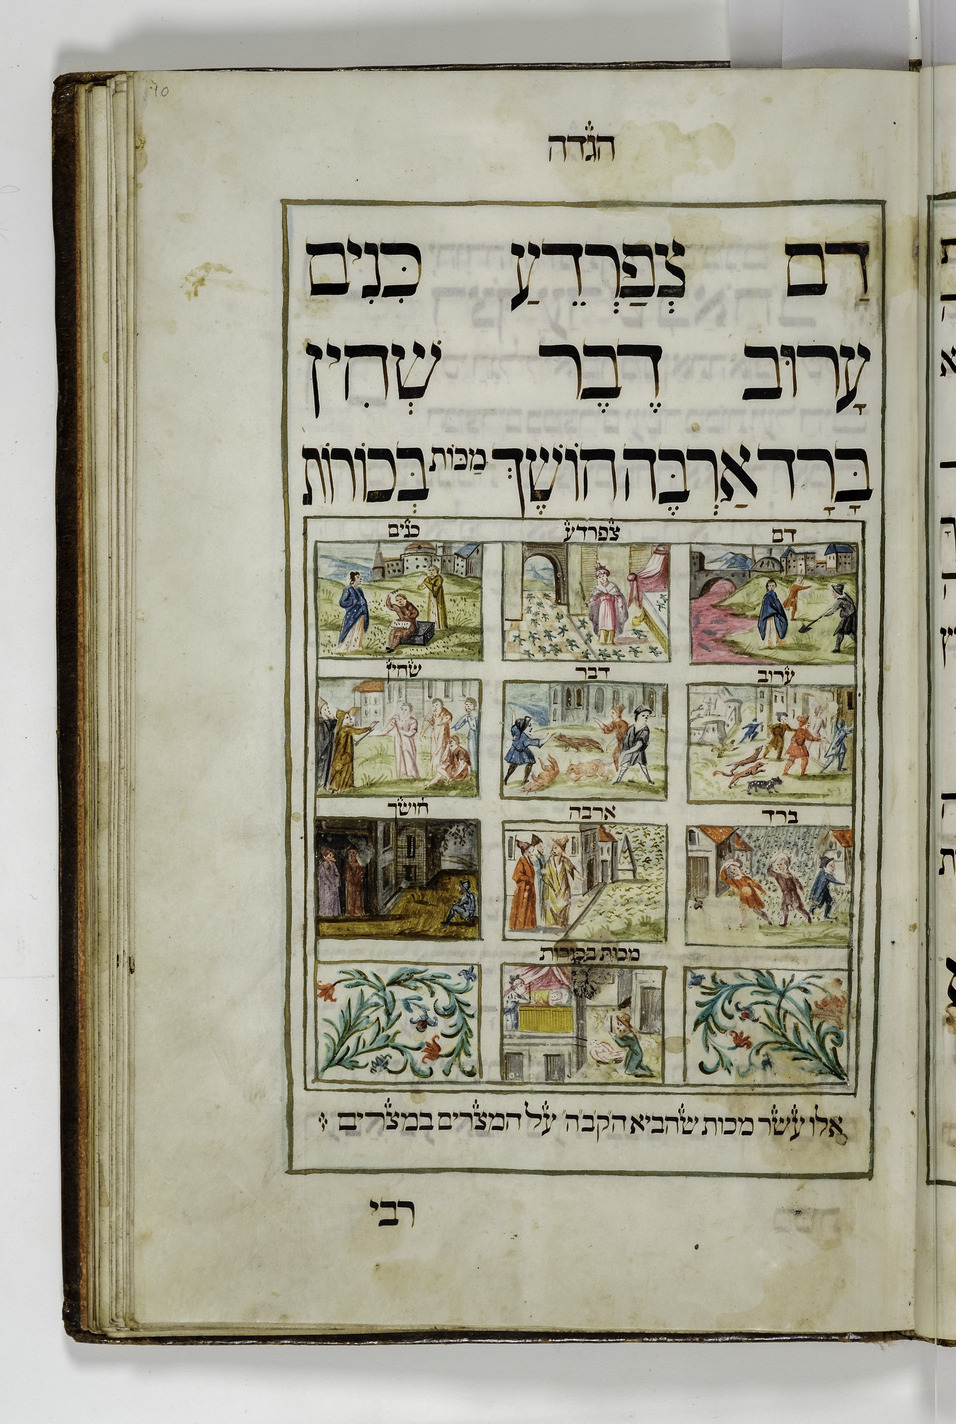 10
הגדה
דָּם צְפַרְדֵּעַ כִּנִּים
עָרוֹב דֶּבֶר שְׁחִין
בָּרָד אַרְבֶּה חוֹשֶׁךְ מַכּוֹת בְּכוֹרוֹת
דם צפרדע כנים
ערוב דבר שחין
ברד ארבה חושך
מכות בכורות
אלו עשר מכות שהביא הקבה על המצרים במצרים
רבי